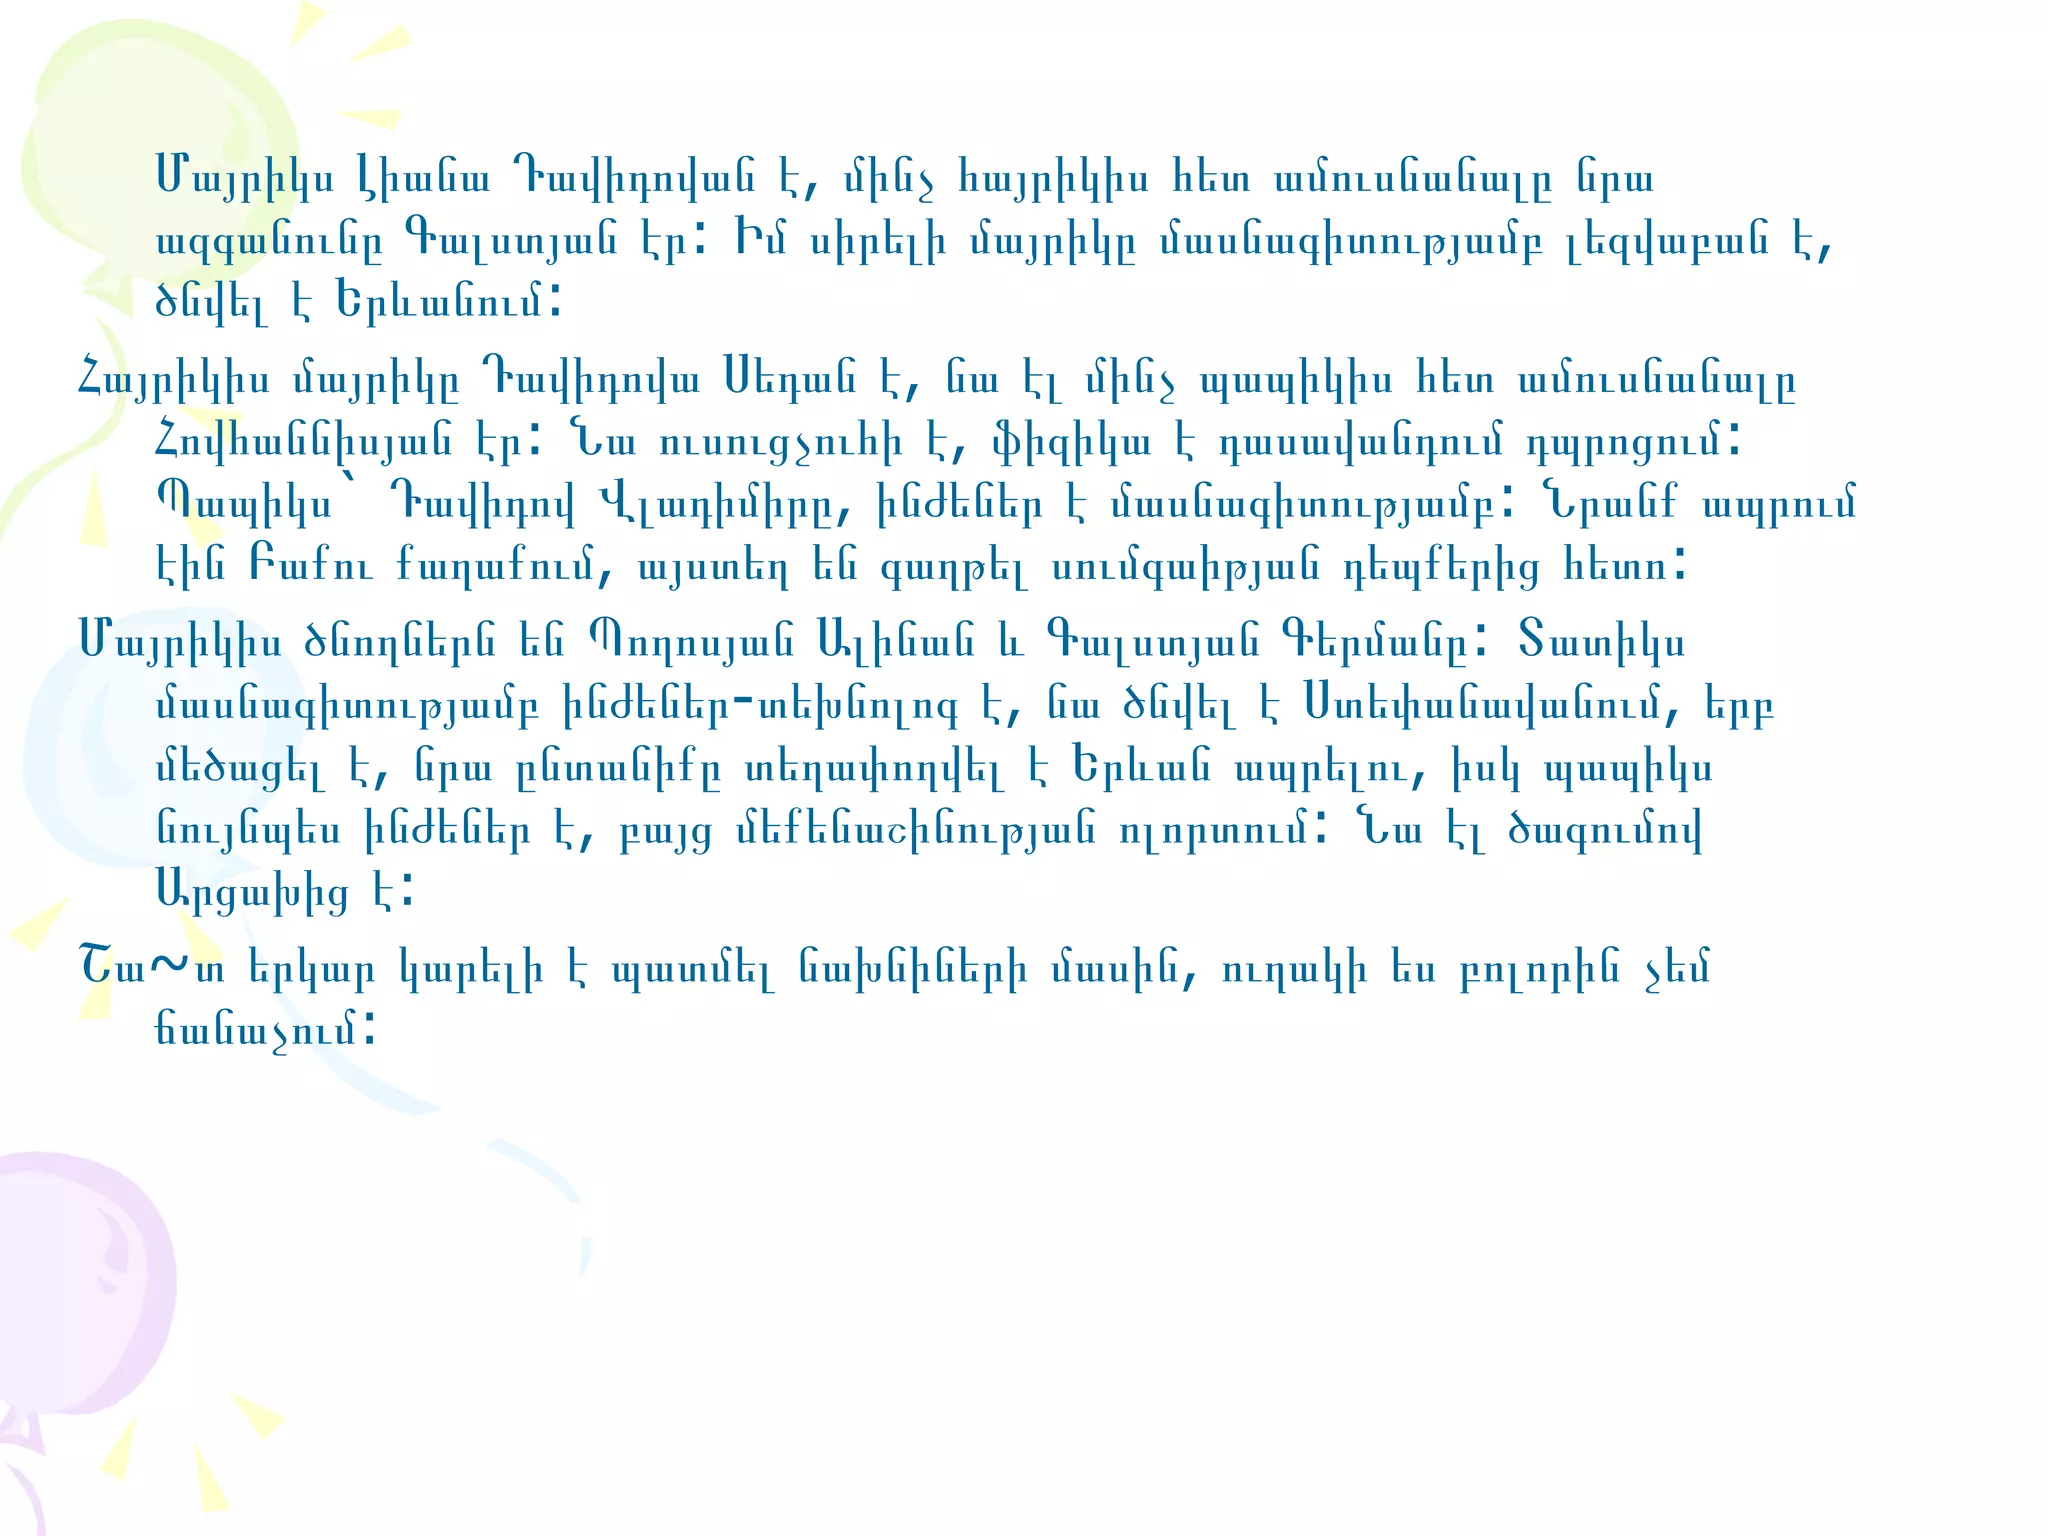 Մայրիկս Լիանա Դավիդովան է, մինչ հայրիկիս հետ ամուսնանալը նրա
ազգանունը Գալստյան էր: Իմ սիրելի մայրիկը մասնագիտությամբ լեզվաբան է,
ծնվել է Երևանում:
Հայրիկիս մայրիկը Դավիդովա Սեդան է, նա էլ մինչ պապիկիս հետ ամուսնանալը
Հովհաննիսյան էր: Նա ուսուցչուհի է, ֆիզիկա է դասավանդում դպրոցում:
Պապիկս՝ Դավիդով Վլադիմիրը, ինժեներ է մասնագիտությամբ: Նրանք ապրում
էին Բաքու քաղաքում, այստեղ են գաղթել սումգաիթյան դեպքերից հետո:
Մայրիկիս ծնողներն են Պողոսյան Ալինան և Գալստյան Գերմանը: Տատիկս
մասնագիտությամբ ինժեներ-տեխնոլոգ է, նա ծնվել է Ստեփանավանում, երբ
մեծացել է, նրա ընտանիքը տեղափոխվել է Երևան ապրելու, իսկ պապիկս
նույնպես ինժեներ է, բայց մեքենաշինության ոլորտում: Նա էլ ծագումով
Արցախից է:
Շա~տ երկար կարելի է պատմել նախնիների մասին, ուղակի ես բոլորին չեմ
ճանաչում: